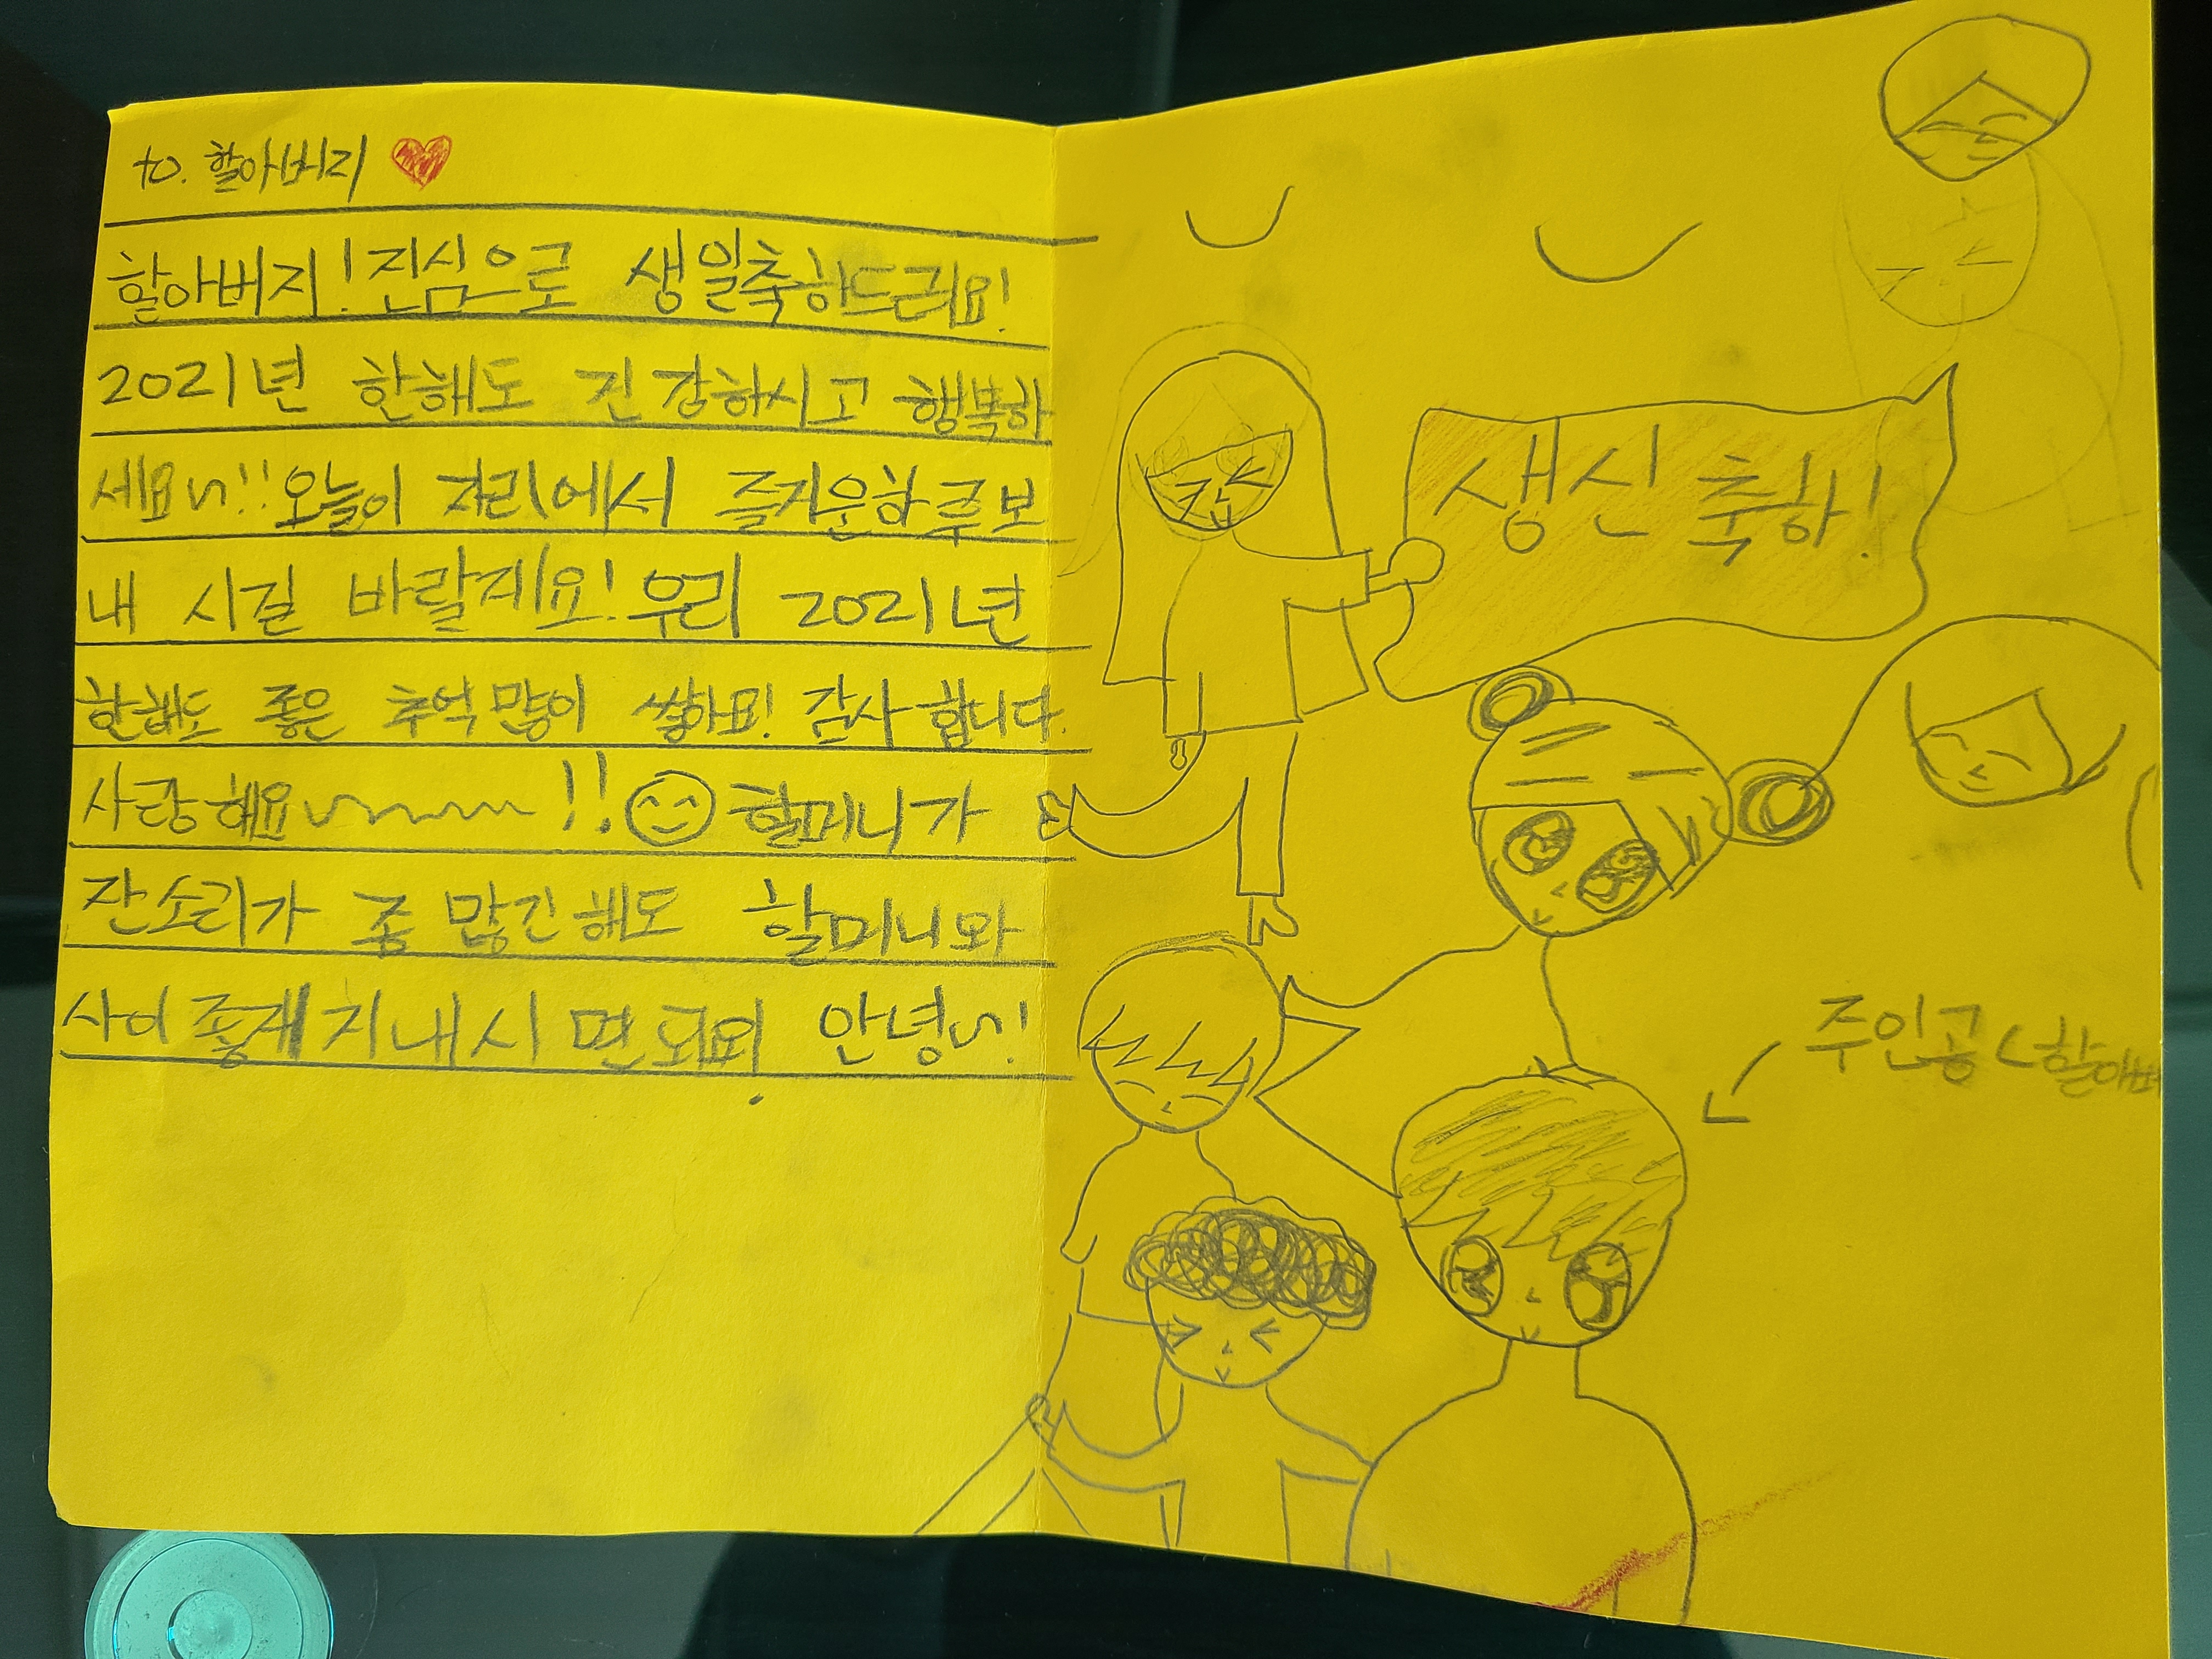 to. 할아버지
할아버지! 진심으로 생일축하드려요!
2021년 한해도 건강하시고 행복하
세요~!! 오늘이 자리에서 즐거운하루보
내 시길 바랄게요! 우리 2021년
한해도 좋은 추억많이 쌓아요! 감사 합니다.
사랑해요~~~~ !! 할머니가
잔소리가 좀 많긴해도 할머니와
사이 좋게 지내시면 되요. 안녕~!
생신 축하!
주인공<할아버